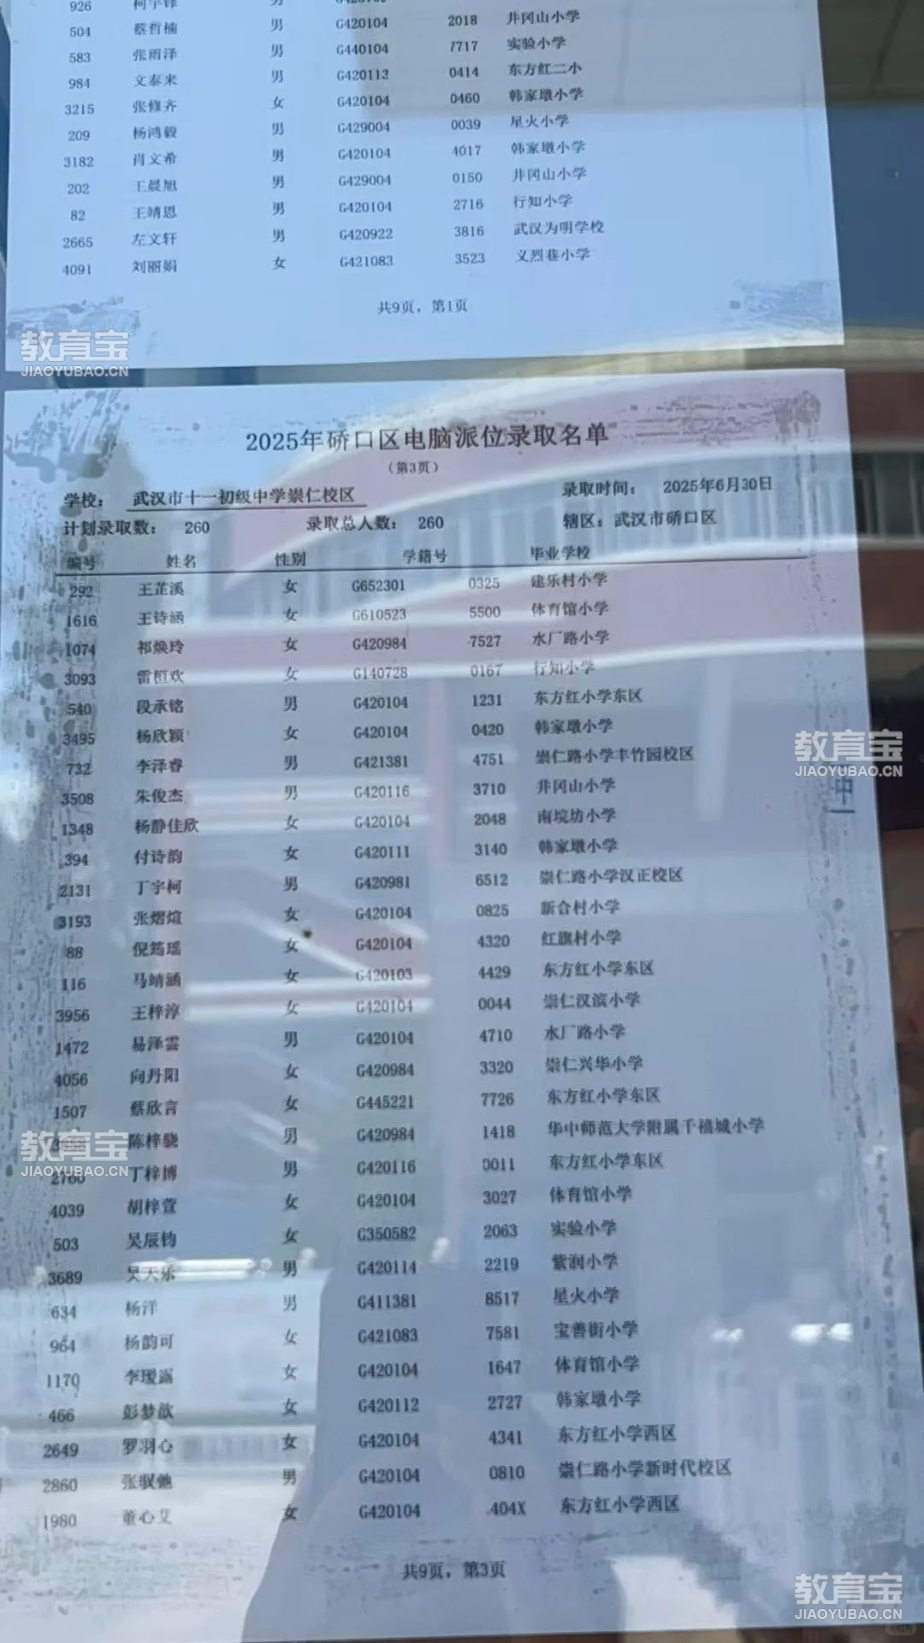 926
504 蔡哲楠 男 G420104 2018 井冈山小学
583 张雨泽 男 G440104 7717 实验小学
984 文泰来 男 G420113 0414 东方红二小
3215 张修齐 女 G420104 0460 韩家墩小学
209 杨鸿毅 男 G429004 0039 星火小学
3182 肖文希 男 G420104 4017 韩家墩小学
202 王晨旭 男 G429004 0150 井冈山小学
82 王靖恩 男 G420104 2716 行知小学
2665 左文轩 男 G420922 3816 武汉为明学校
4091 刘丽娟 女 G421083 3523 义烈巷小学
共9页，第1页
教育宝
JIAOYUBAO.CN
2025年硚口区电脑派位录取名单
（第3页）
学校： 武汉市十一初级中学崇仁校区 录取时间： 2025年6月30日
计划录取数： 260 录取总人数： 260 辖区：武汉市硚口区
编号 姓名 性别 学籍号 毕业学校
292 王芷溪 女 G652301 0325 建乐村小学
1616 王诗涵 女 G610523 5500 体育馆小学
1074 祁焕玲 女 G420984 7527 水厂路小学
3093 雷桓欢 女 G140728 0167 行知小学
540 段承铭 男 G420104 1231 东方红小学东区
3495 杨欣颖 女 G420104 0420 韩家墩小学
732 李泽睿 男 G421381 4751 崇仁路小学丰竹园校区
教育宝
JIAOYUBAO.CN
3508 朱俊杰 男 G420116 3710 井冈山小学
中
1348 杨静佳欣 女 G420104 2048 南垸坊小学
394 付诗韵 女 G420111 3140 韩家墩小学
2131 丁宇柯 男 G420981 6512 崇仁路小学汉正校区
3193 张熠煊 女 G420104 0825 新合村小学
88 倪筠瑶 女 G420104 4320 红旗村小学
116 马靖涵 女 G420103 4429 东方红小学东区
3956 王梓淳 女 G420104 0044 崇仁汉滨小学
1472 易泽雲 男 G420104 4710 水厂路小学
4056 向丹阳 女 G420984 3320 崇仁兴华小学
1507 蔡欣言 女 G445221 7726 东方红小学东区
陈梓骁 男 G420984 1418 华中师范大学附属千禧城小学
教育宝
JIAOYUBAO.CN
2760 丁梓博 男 G420116 0011 东方红小学东区
4039 胡梓萱 女 G420104 3027 体育馆小学
503 吴辰钧 女 G350582 2063 实验小学
3689 吴天乐 男 G420114 2219 紫润小学
634 杨洋 男 G411381 8517 星火小学
964 杨韵可 女 G421083 7581 宝善街小学
1170 李瑷露 女 G420104 1647 体育馆小学
466 彭梦歆 女 G420112 2727 韩家墩小学
2649 罗羽心 女 G420104 4341 东方红小学西区
2860 张驭虪 男 G420104 0810 崇仁路小学新时代校区
1980 董心艾 女 G420104 404X 东方红小学西区
共9页，第3页
教育宝
JIAOYUBAO.CN